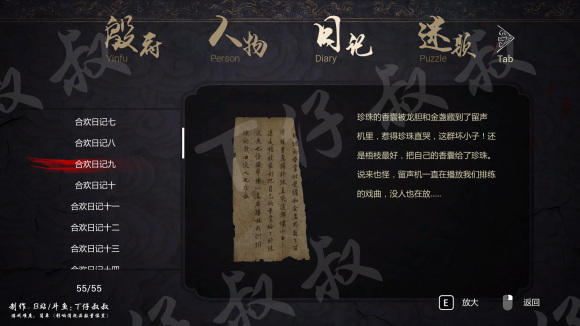 殷府
人物
日记
迷踪
Yinfu
Person
Diary
Puzzle
Tab
合欢日记七
合欢日记八
合欢日记九
合欢日记十
合欢日记十一
合欢日记十二
合欢日记十三
合欢日记十四
55/55
珍珠的香囊被龙胆和金盏藏到了留声
机里，惹得珍珠直哭，这群坏小子！还
是梧枝最好，把自己的香囊给了珍珠。
说来也怪，留声机一直在播放我们排练
的戏曲，没人也在放......
制作：B站/斗鱼：丁仔叔叔
E 放大
返回
丁仔叔叔